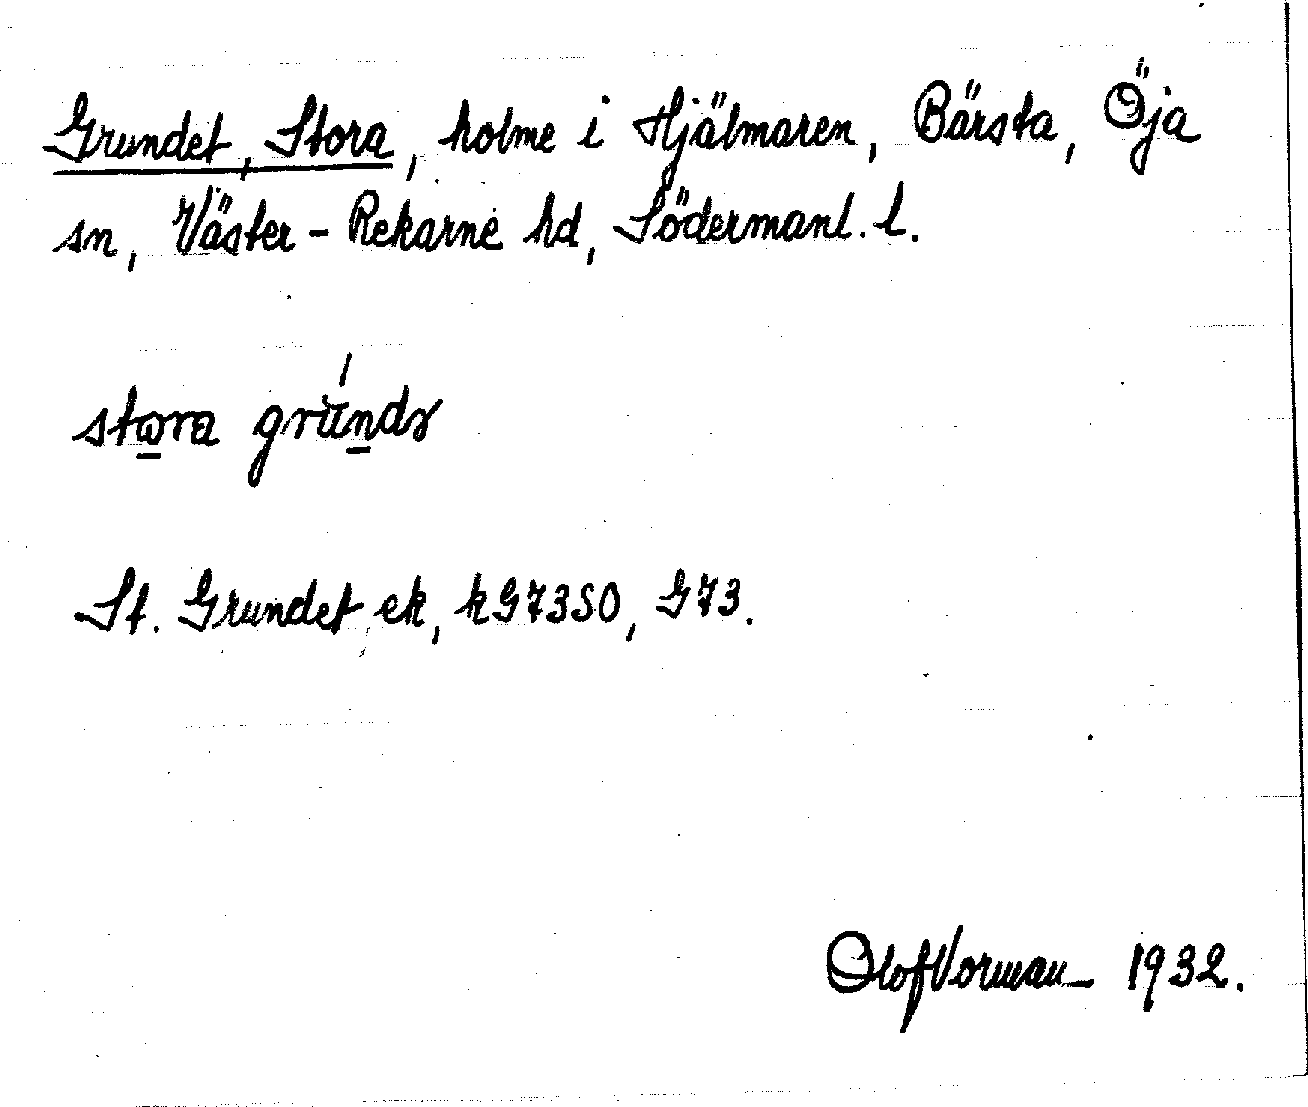 Grundet, Stora, holme i Hjälmaren, Bärsta, Öja
sn, Väster-Rekarne hd, Södermanl. l.
stora grúndɤ
St. Grundet ek, kG73SO, G73.
Olof Vorman 1932.